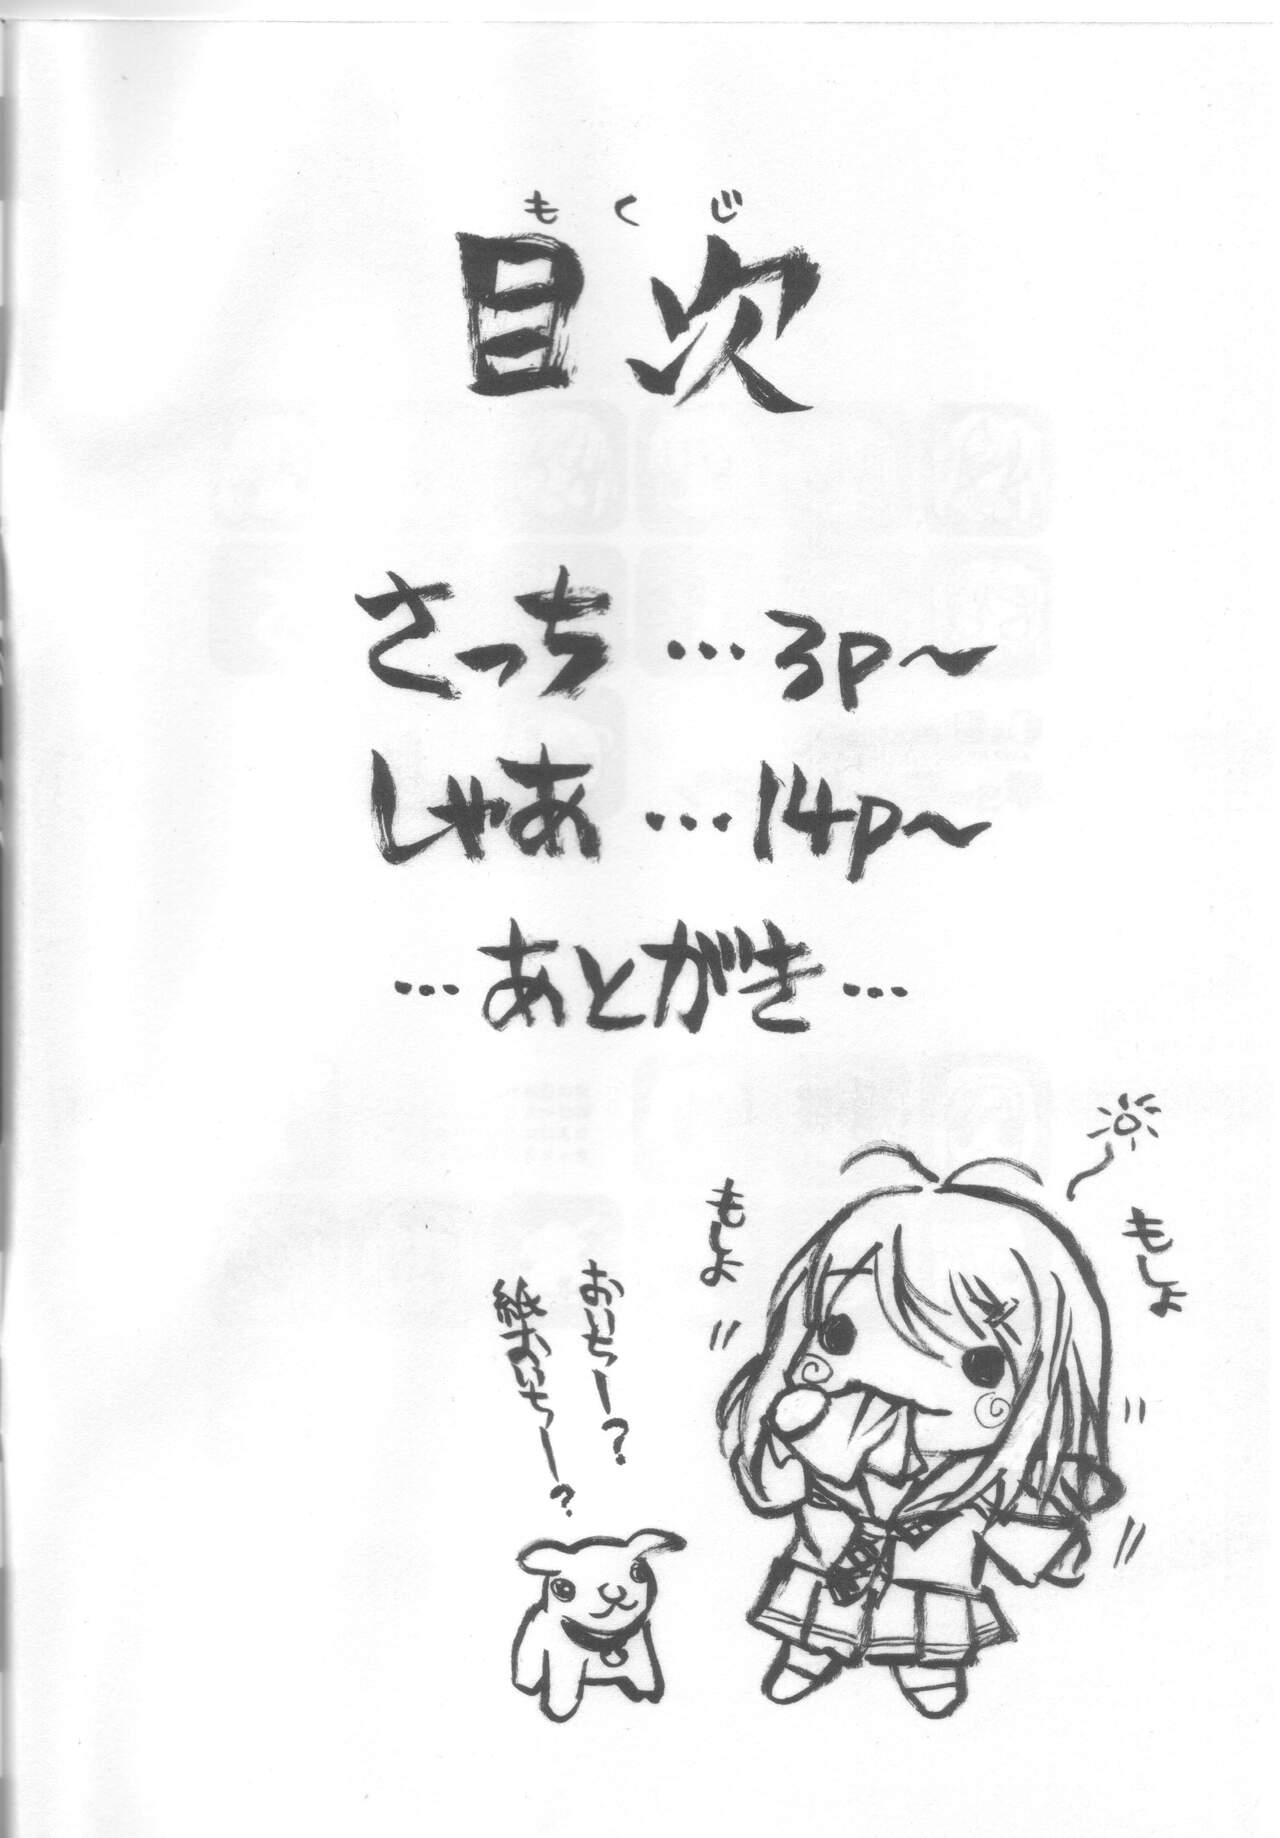 もくじ
目次
さっち…3p〜
しゃあ…14p〜
…あとがき…
もしょ
もしょ
おいちー?
紙おいちー?